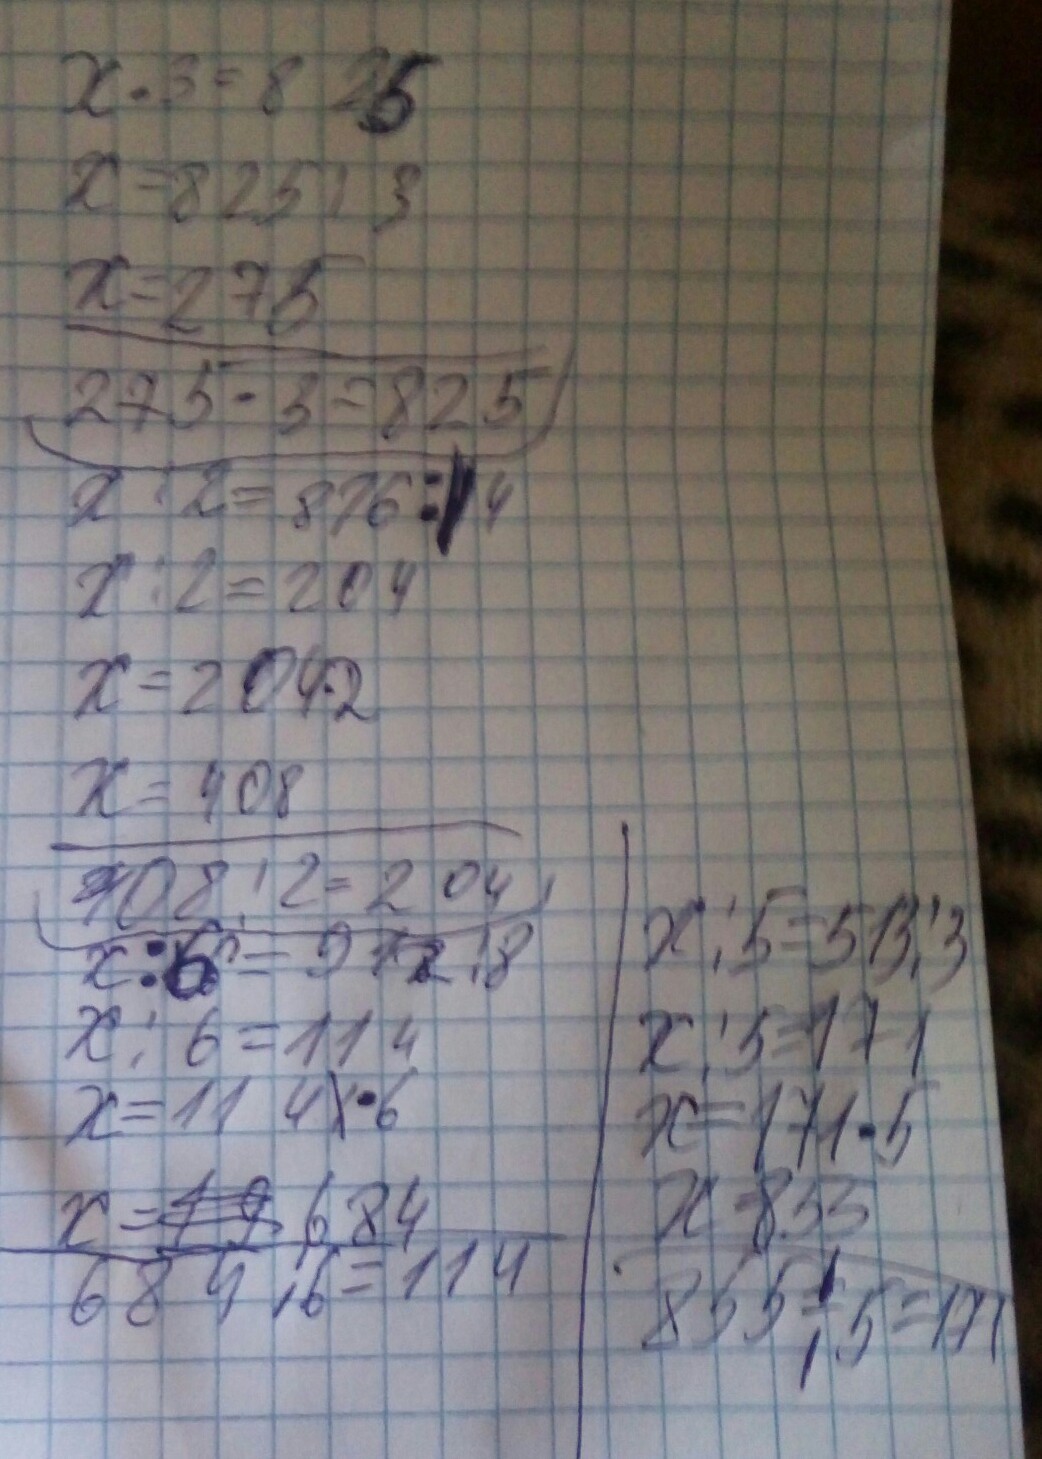 x·3=825
x=825:3
x=275
275·3=825
x:2=816:4
x:2=204
x=204·2
x=408
408:2=204
x:6=912:8
x:6=114
x=114·6
x=684
684:6=114
x:5=513:3
x:5=171
x=171·5
x=855
855:5=171